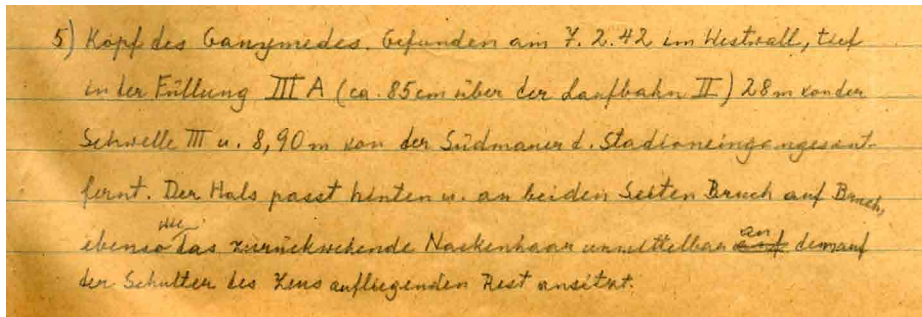 5) Kopf des Ganymedes. Gefunden am 7.2.42 im Westwall, tief
in der Füllung III A (ca. 85cm über der Laufbahn II) 28m von der
Schwelle III u. 8,90m von der Südmauer d. Stadioneinganges ent-
fernt. Der Hals passt hinten u. an beiden Seiten Bruch auf Bruch,
ebenso wie das zurückwehende Nackenhaar unmittelbar an dem auf
der Schulter des Zeus aufliegenden Rest ansitzt.